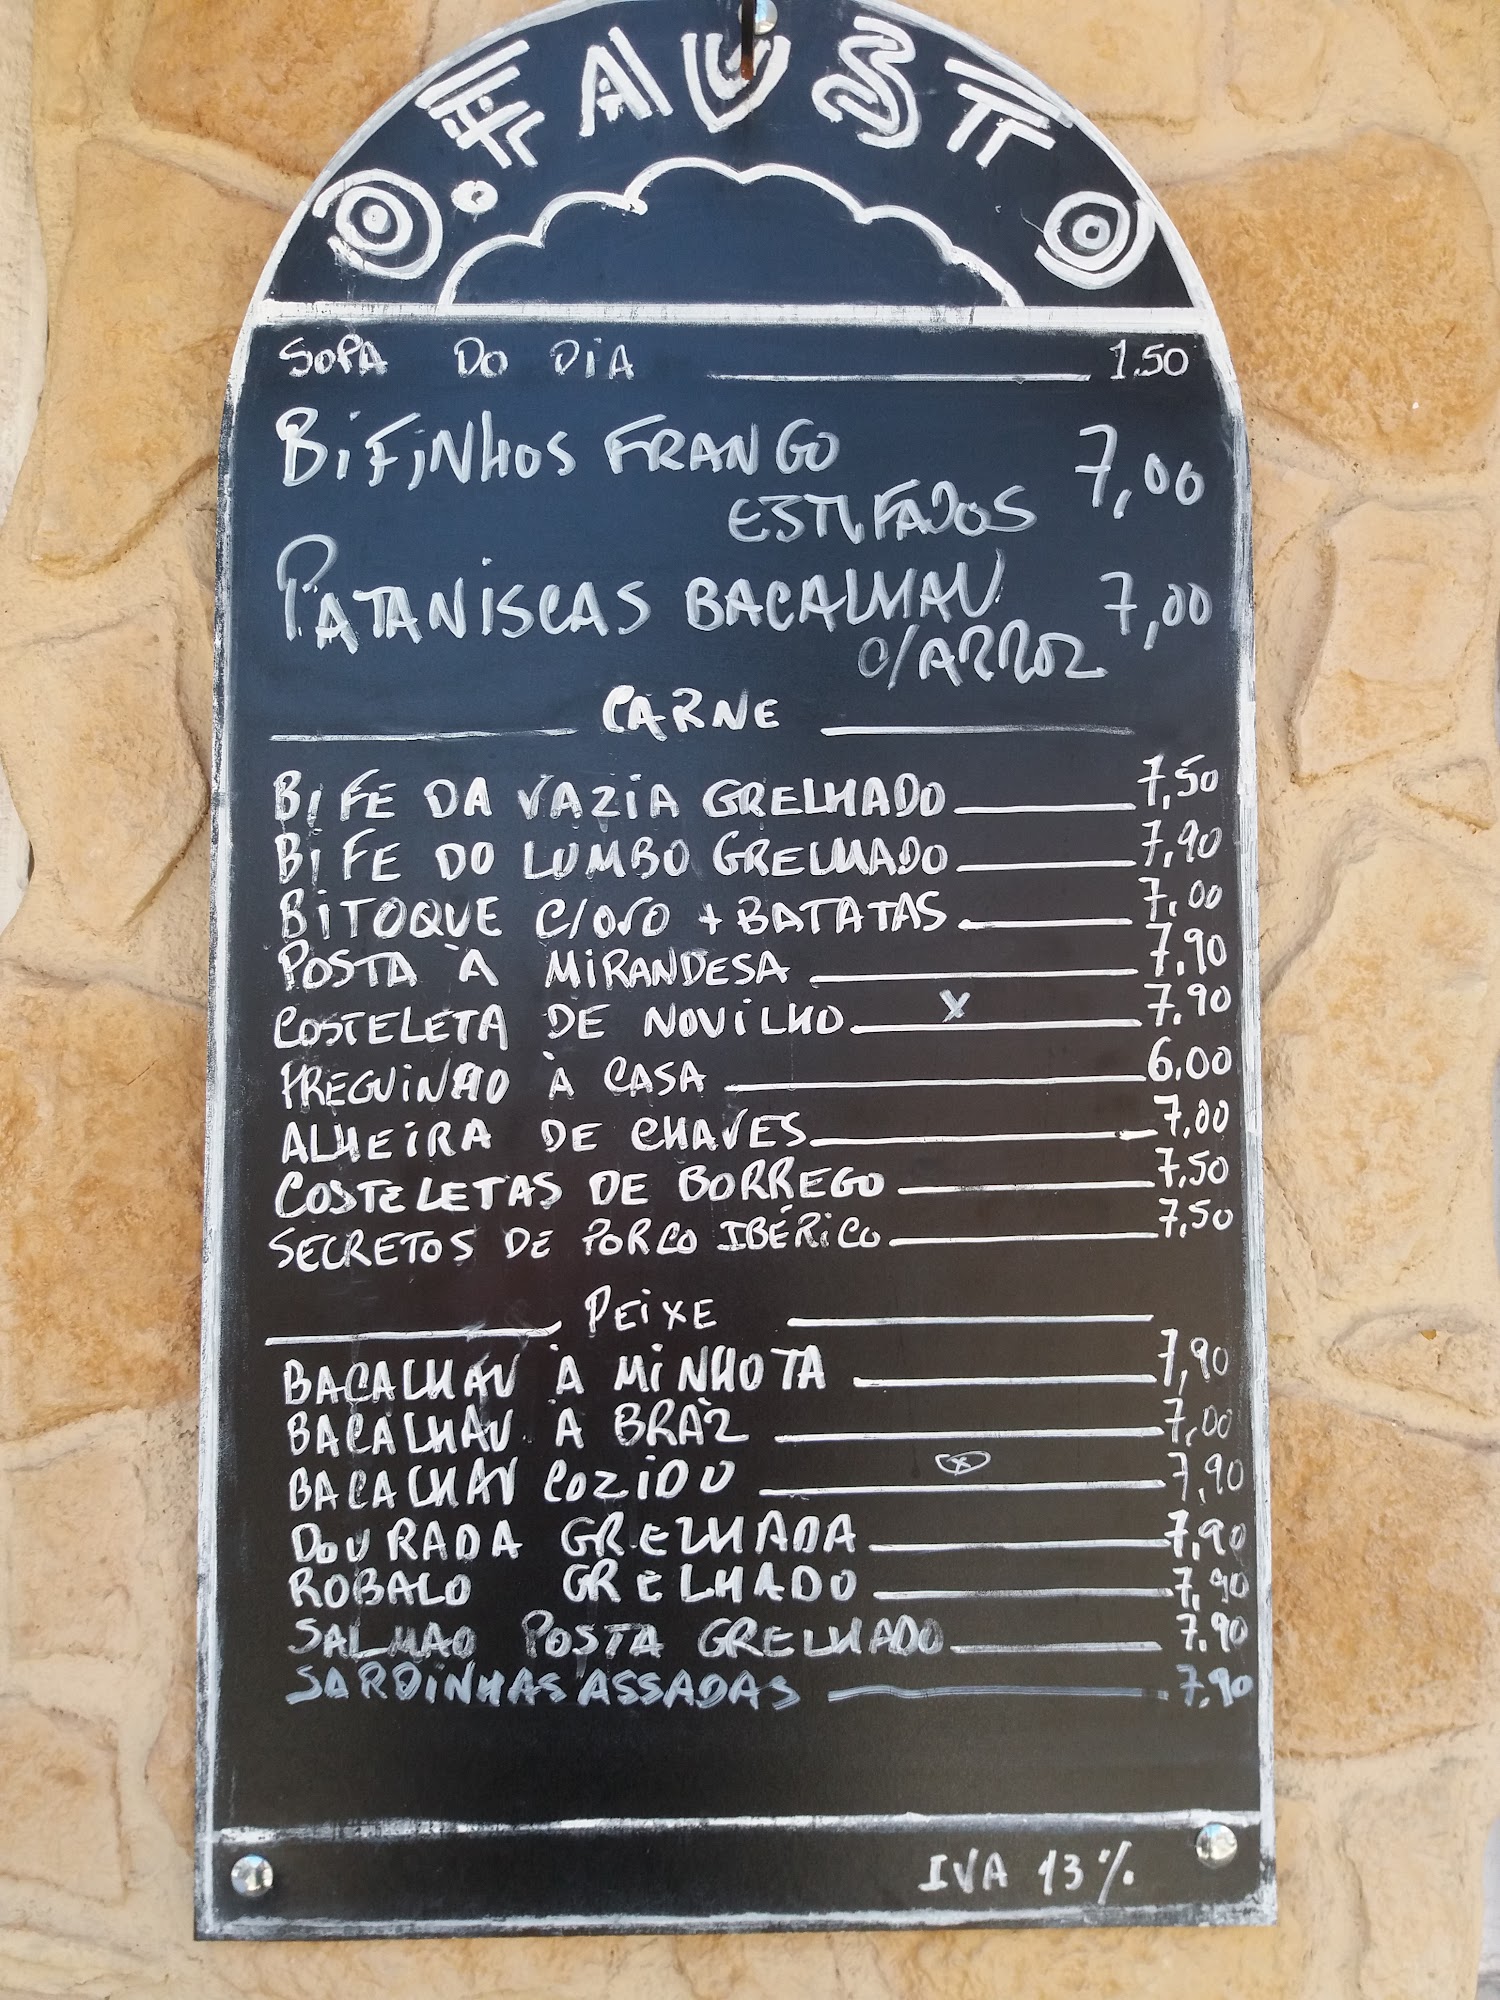 O. FAUSTO
SOPA DO DIA 1.50
BIFINHOS FRANGO 7,00
ESTUFADOS
PATANISCAS BACALHAU 7,00
C/ARROZ
CARNE
BIFE DA VAZIA GRELHADO 7,50
BIFE DO LUMBO GRELHADO 7,90
BITOQUE C/OVO + BATATAS 7,00
POSTA À MIRANDESA 7,90
COSTELETA DE NOVILHO X 7,90
PREGUINHO À CASA 6,00
ALHEIRA DE CHAVES 7,00
COSTELETAS DE BORREGO 7,50
SECRETOS DE PORCO IBÉRICO 7,50
PEIXE
BACALHAU À MINHOTA 7,90
BACALHAU À BRÀZ 7,00
BACALHAU COZIDO X 7,90
DOURADA GRELHADA 7,90
ROBALO GRELHADO 7,90
SALMAO POSTA GRELHADO 7,90
SARDINHAS ASSADAS 7,90
IVA 13%